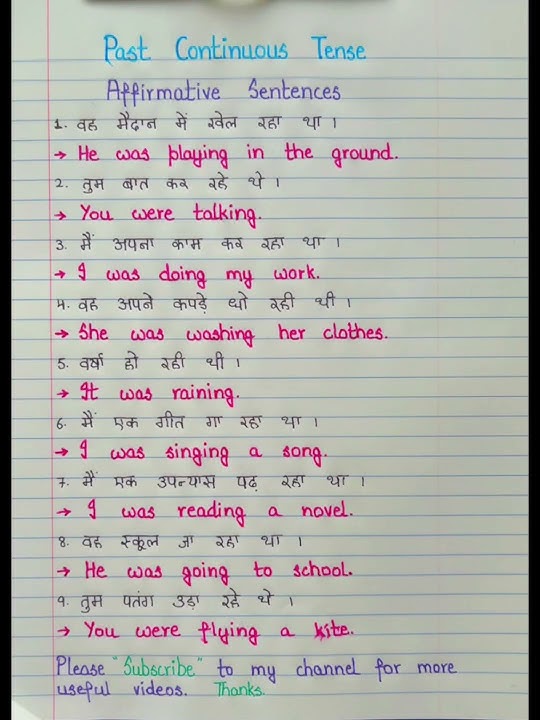 Past Continuous Tense
Affirmative Sentences
1. वह मैदान में खेल रहा था ।
→ He was playing in the ground.
2. तुम बात कर रहे थे ।
→ You were talking.
3. मैं अपना काम कर रहा था ।
→ I was doing my work.
4. वह अपने कपड़े धो रही थी ।
→ She was washing her clothes.
5. वर्षा हो रही थी ।
→ It was raining.
6. मैं एक गीत गा रहा था ।
→ I was singing a song.
7. मैं एक उपन्यास पढ़ रहा था ।
→ I was reading a novel.
8. वह स्कूल जा रहा था ।
→ He was going to school.
9. तुम पतंग उड़ा रहे थे ।
→ You were flying a kite.
Please "Subscribe" to my channel for more
useful videos. Thanks.